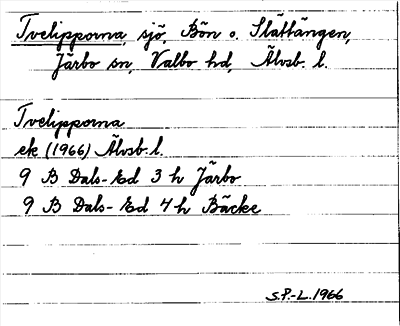 Tvelipporna, sjö, Bön o. Slättängen,
Järbo sn, Valbo hd, Älvsb. l.
Tvelipporna
ek (1966) Älvsb. l.
9 B Dals-Ed 3 h Järbo
9 B Dals-Ed 4 h Bäcke
S.P.-L. 1966